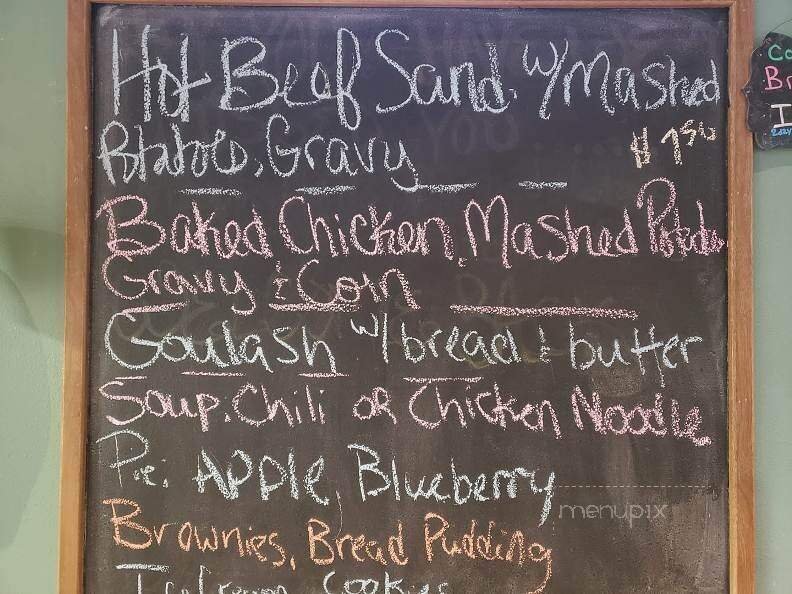 Hot Beef Sand. w/Mashed
Potatoes, Gravy $ 7.50
Baked Chicken, Mashed Potatoes
Gravy & Corn
Goulash w/ bread & butter
Soup: Chili or Chicken Noodle
Pie: Apple, Blueberry
menupix
Brownies, Bread Pudding
Cookies